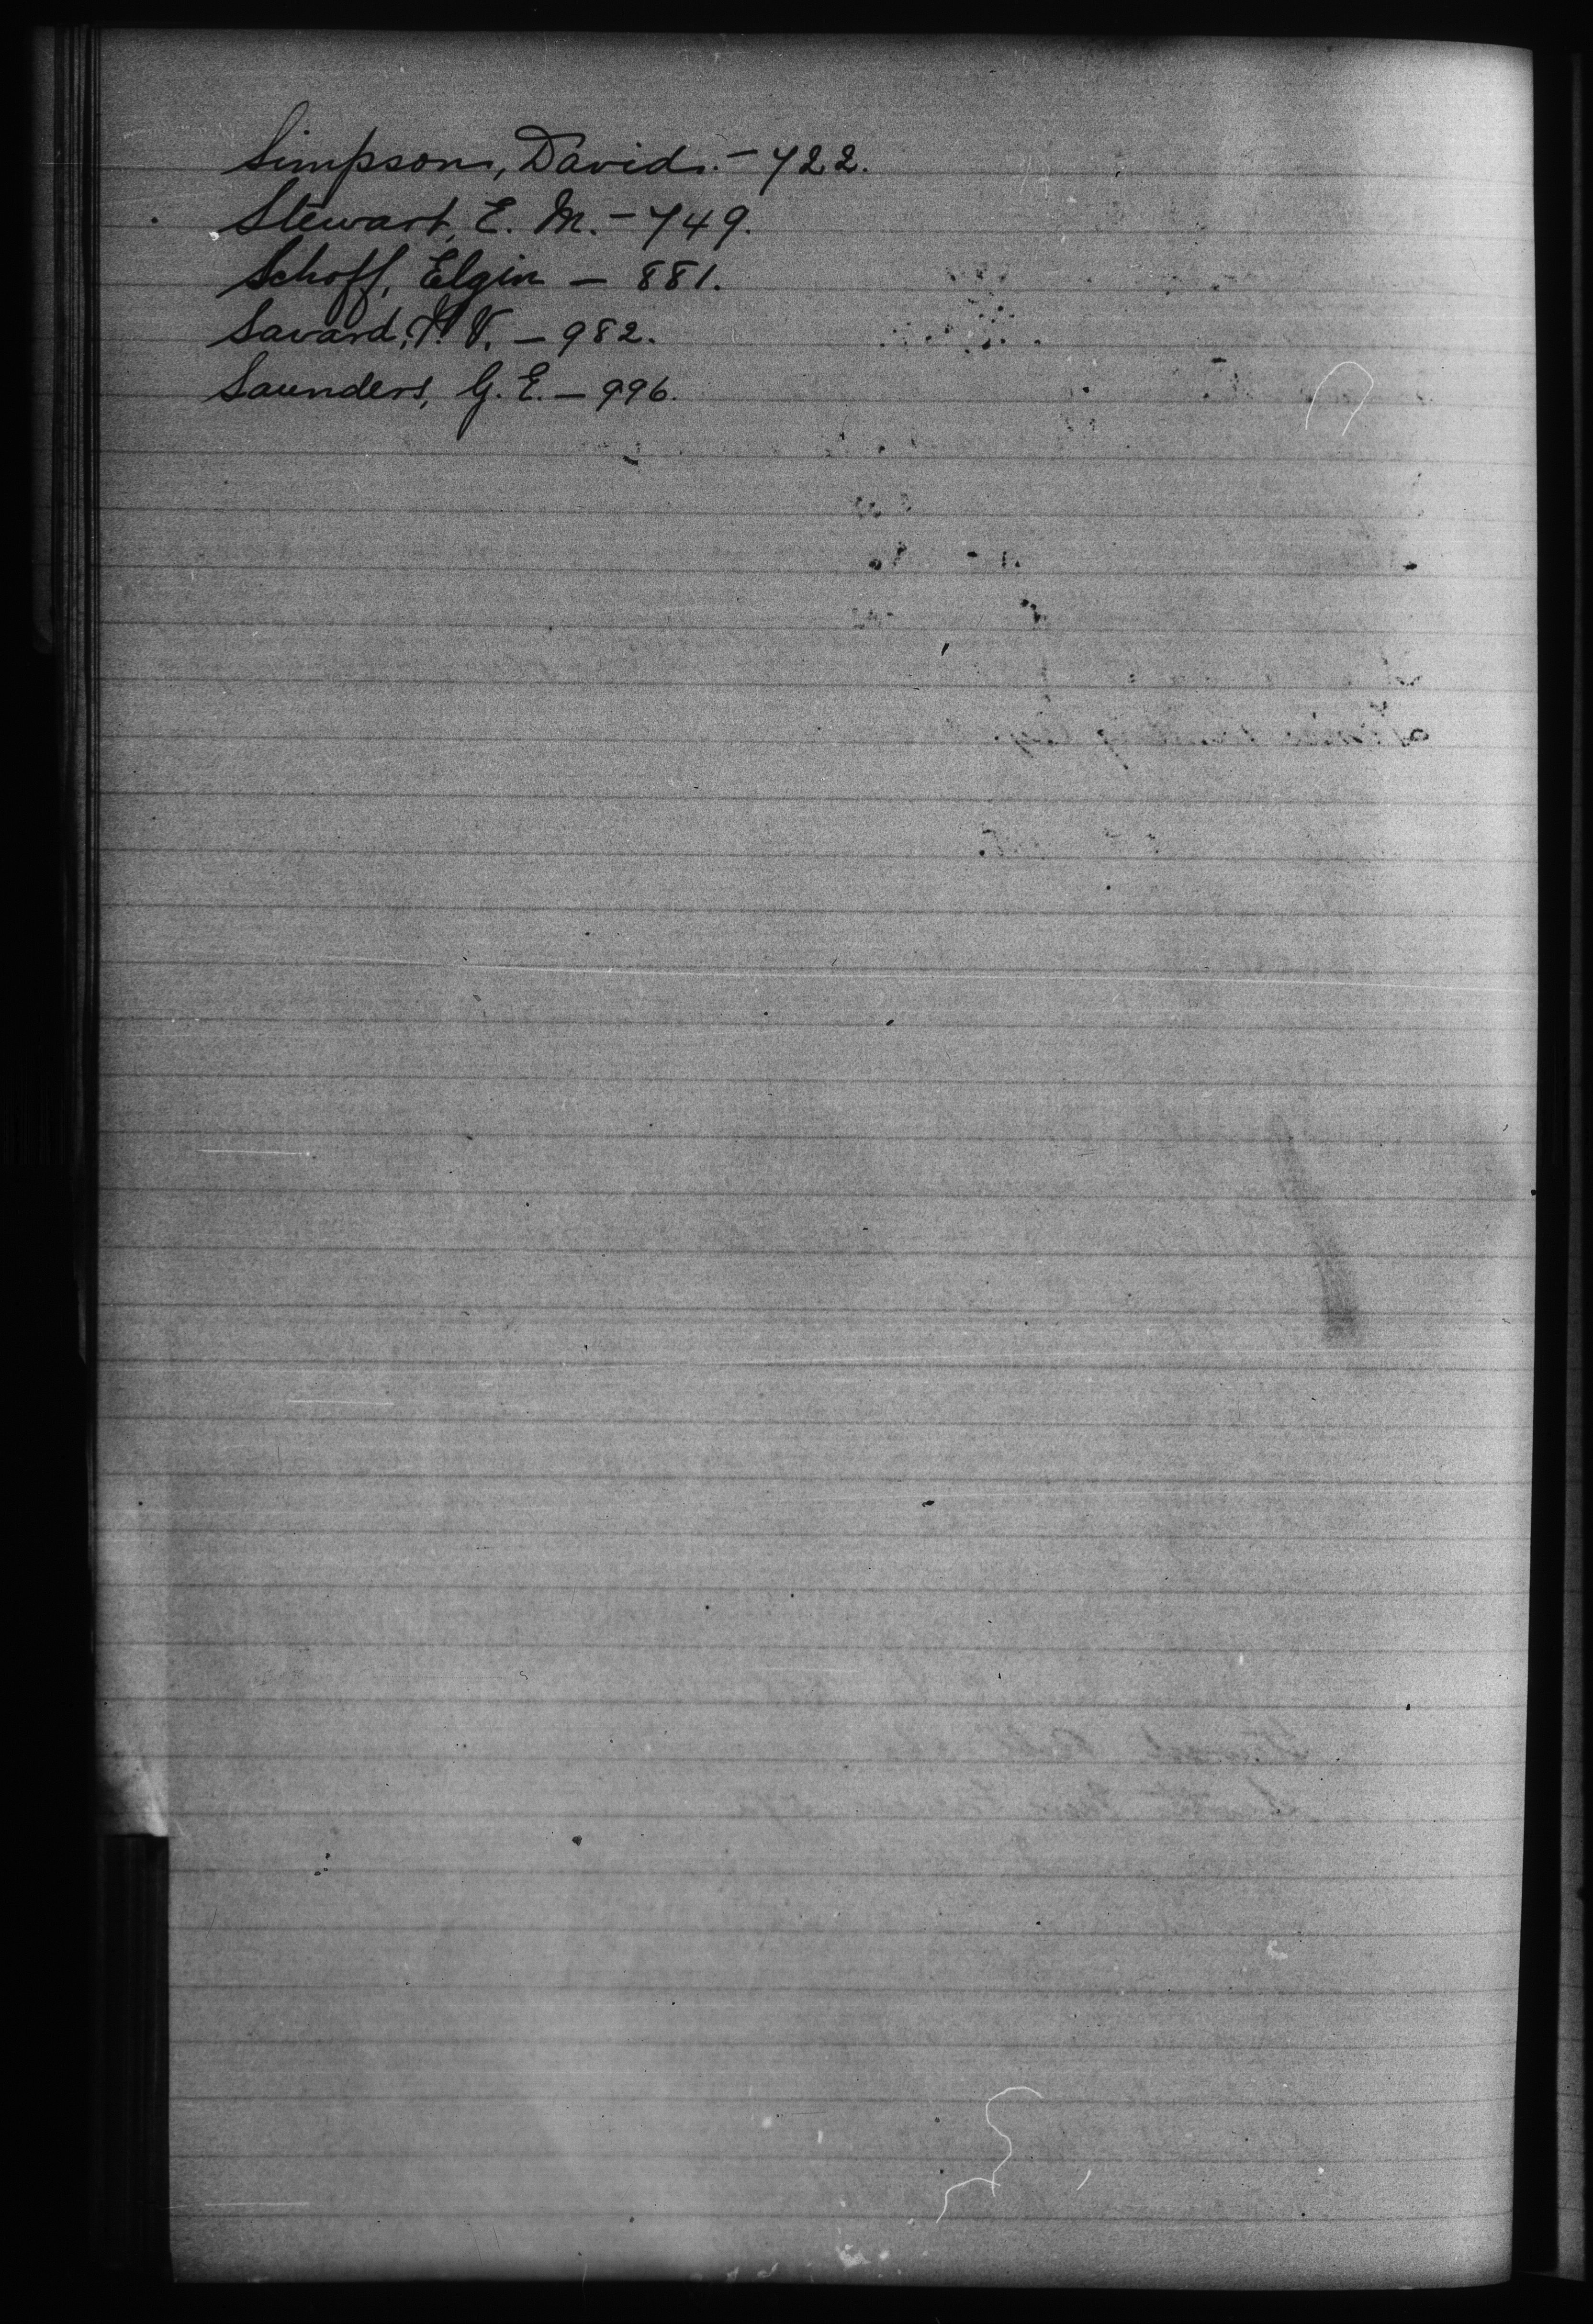 Simpson, David. - 722.
Stewart, E. M. - 749.
Schoff, Elgin - 881.
Savard, F. V. - 982.
Saunders, G. E. - 996.